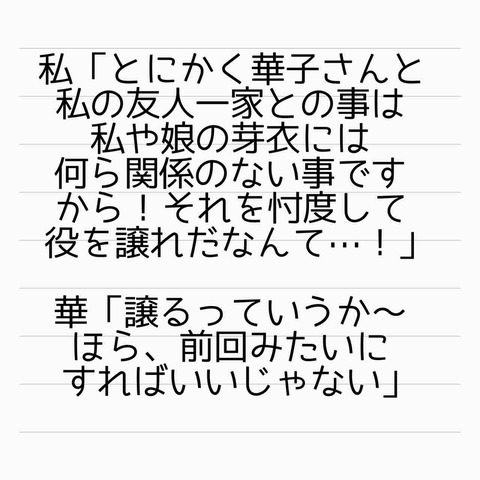 私「とにかく華子さんと
私の友人一家との事は
私や娘の芽衣には
何ら関係のない事です
から！それを忖度して
役を譲れだなんて…！」
華「譲るっていうか～
ほら、前回みたいに
すればいいじゃない」